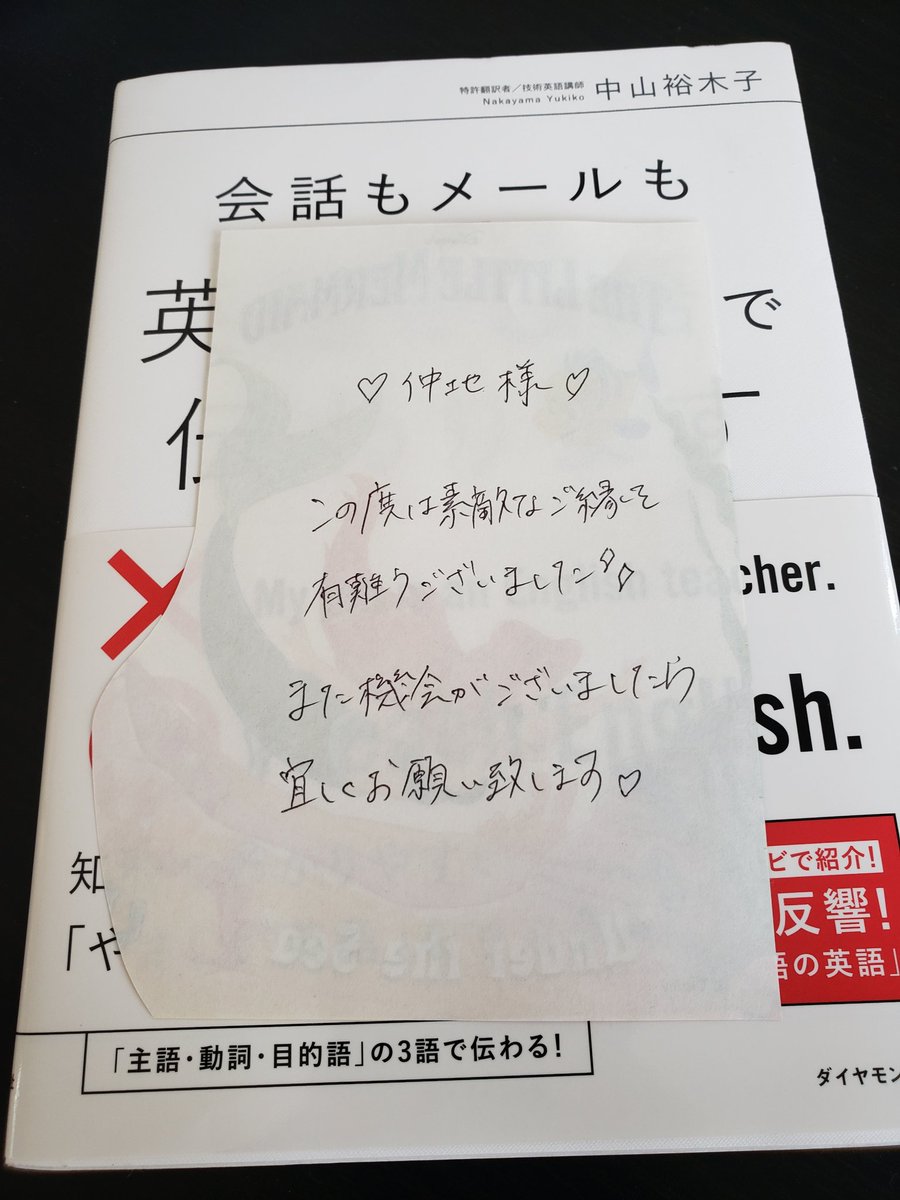 特許翻訳者/技術英語講師
Nakayama Yukiko
中山裕木子
会話もメールも
英 で
THE LITTLE MERMAID
♡仲地様♡
この度は素敵なご縁して
有難うございました
また機会がございましたら
宜しくお願い致します♡
My English teacher.
sh.
ビで紹介!
反響!
語の英語」
知
「や
Under the Sea
「主語・動詞・目的語」の3語で伝わる!
ダイヤモン